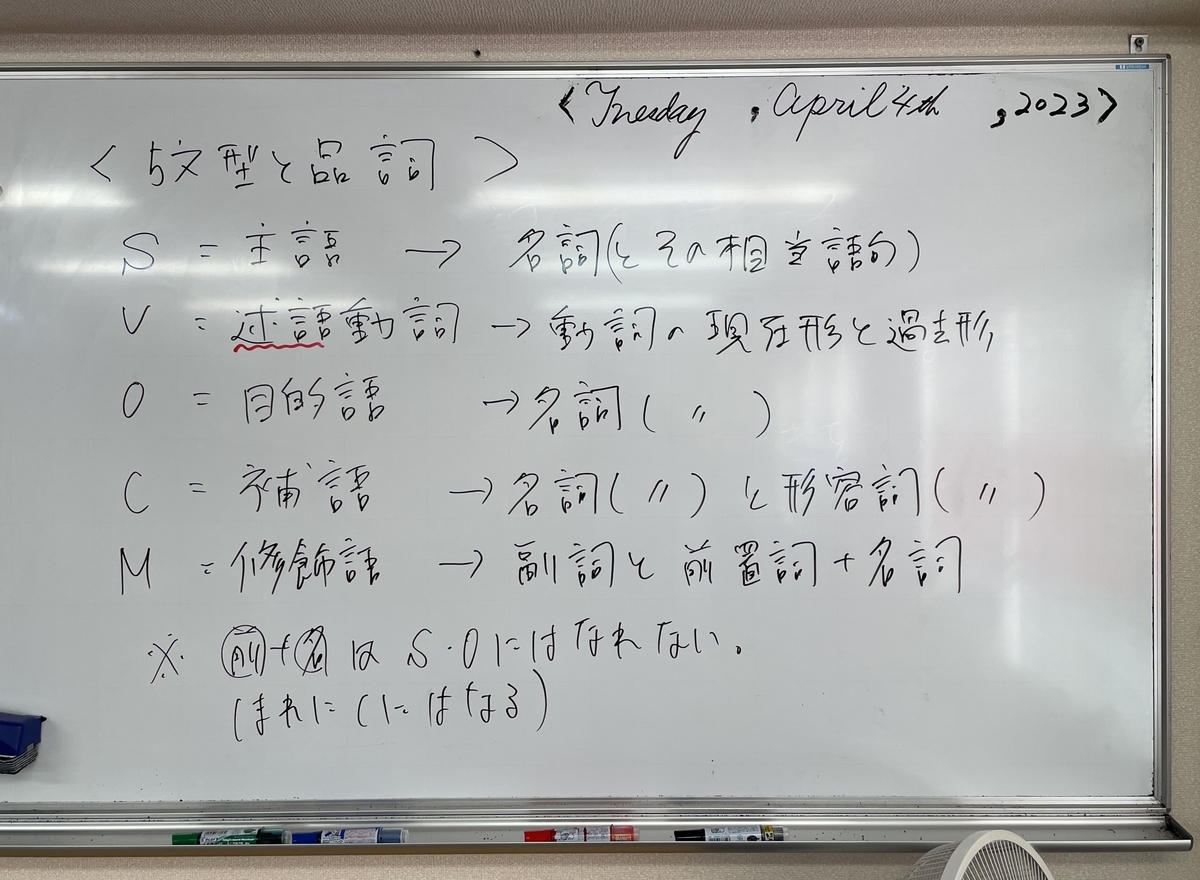 < Tuesday , April 4th , 2023 >
< 5文型と品詞 >
S = 主語 → 名詞(とその相当語句)
V = 述語動詞 → 動詞の現在形と過去形
O = 目的語 → 名詞( 〃 )
C = 補語 → 名詞( 〃 )と形容詞( 〃 )
M = 修飾語 → 副詞と前置詞+名詞
※ 前+名は S・Oにはなれない。
(まれにCにはなる)